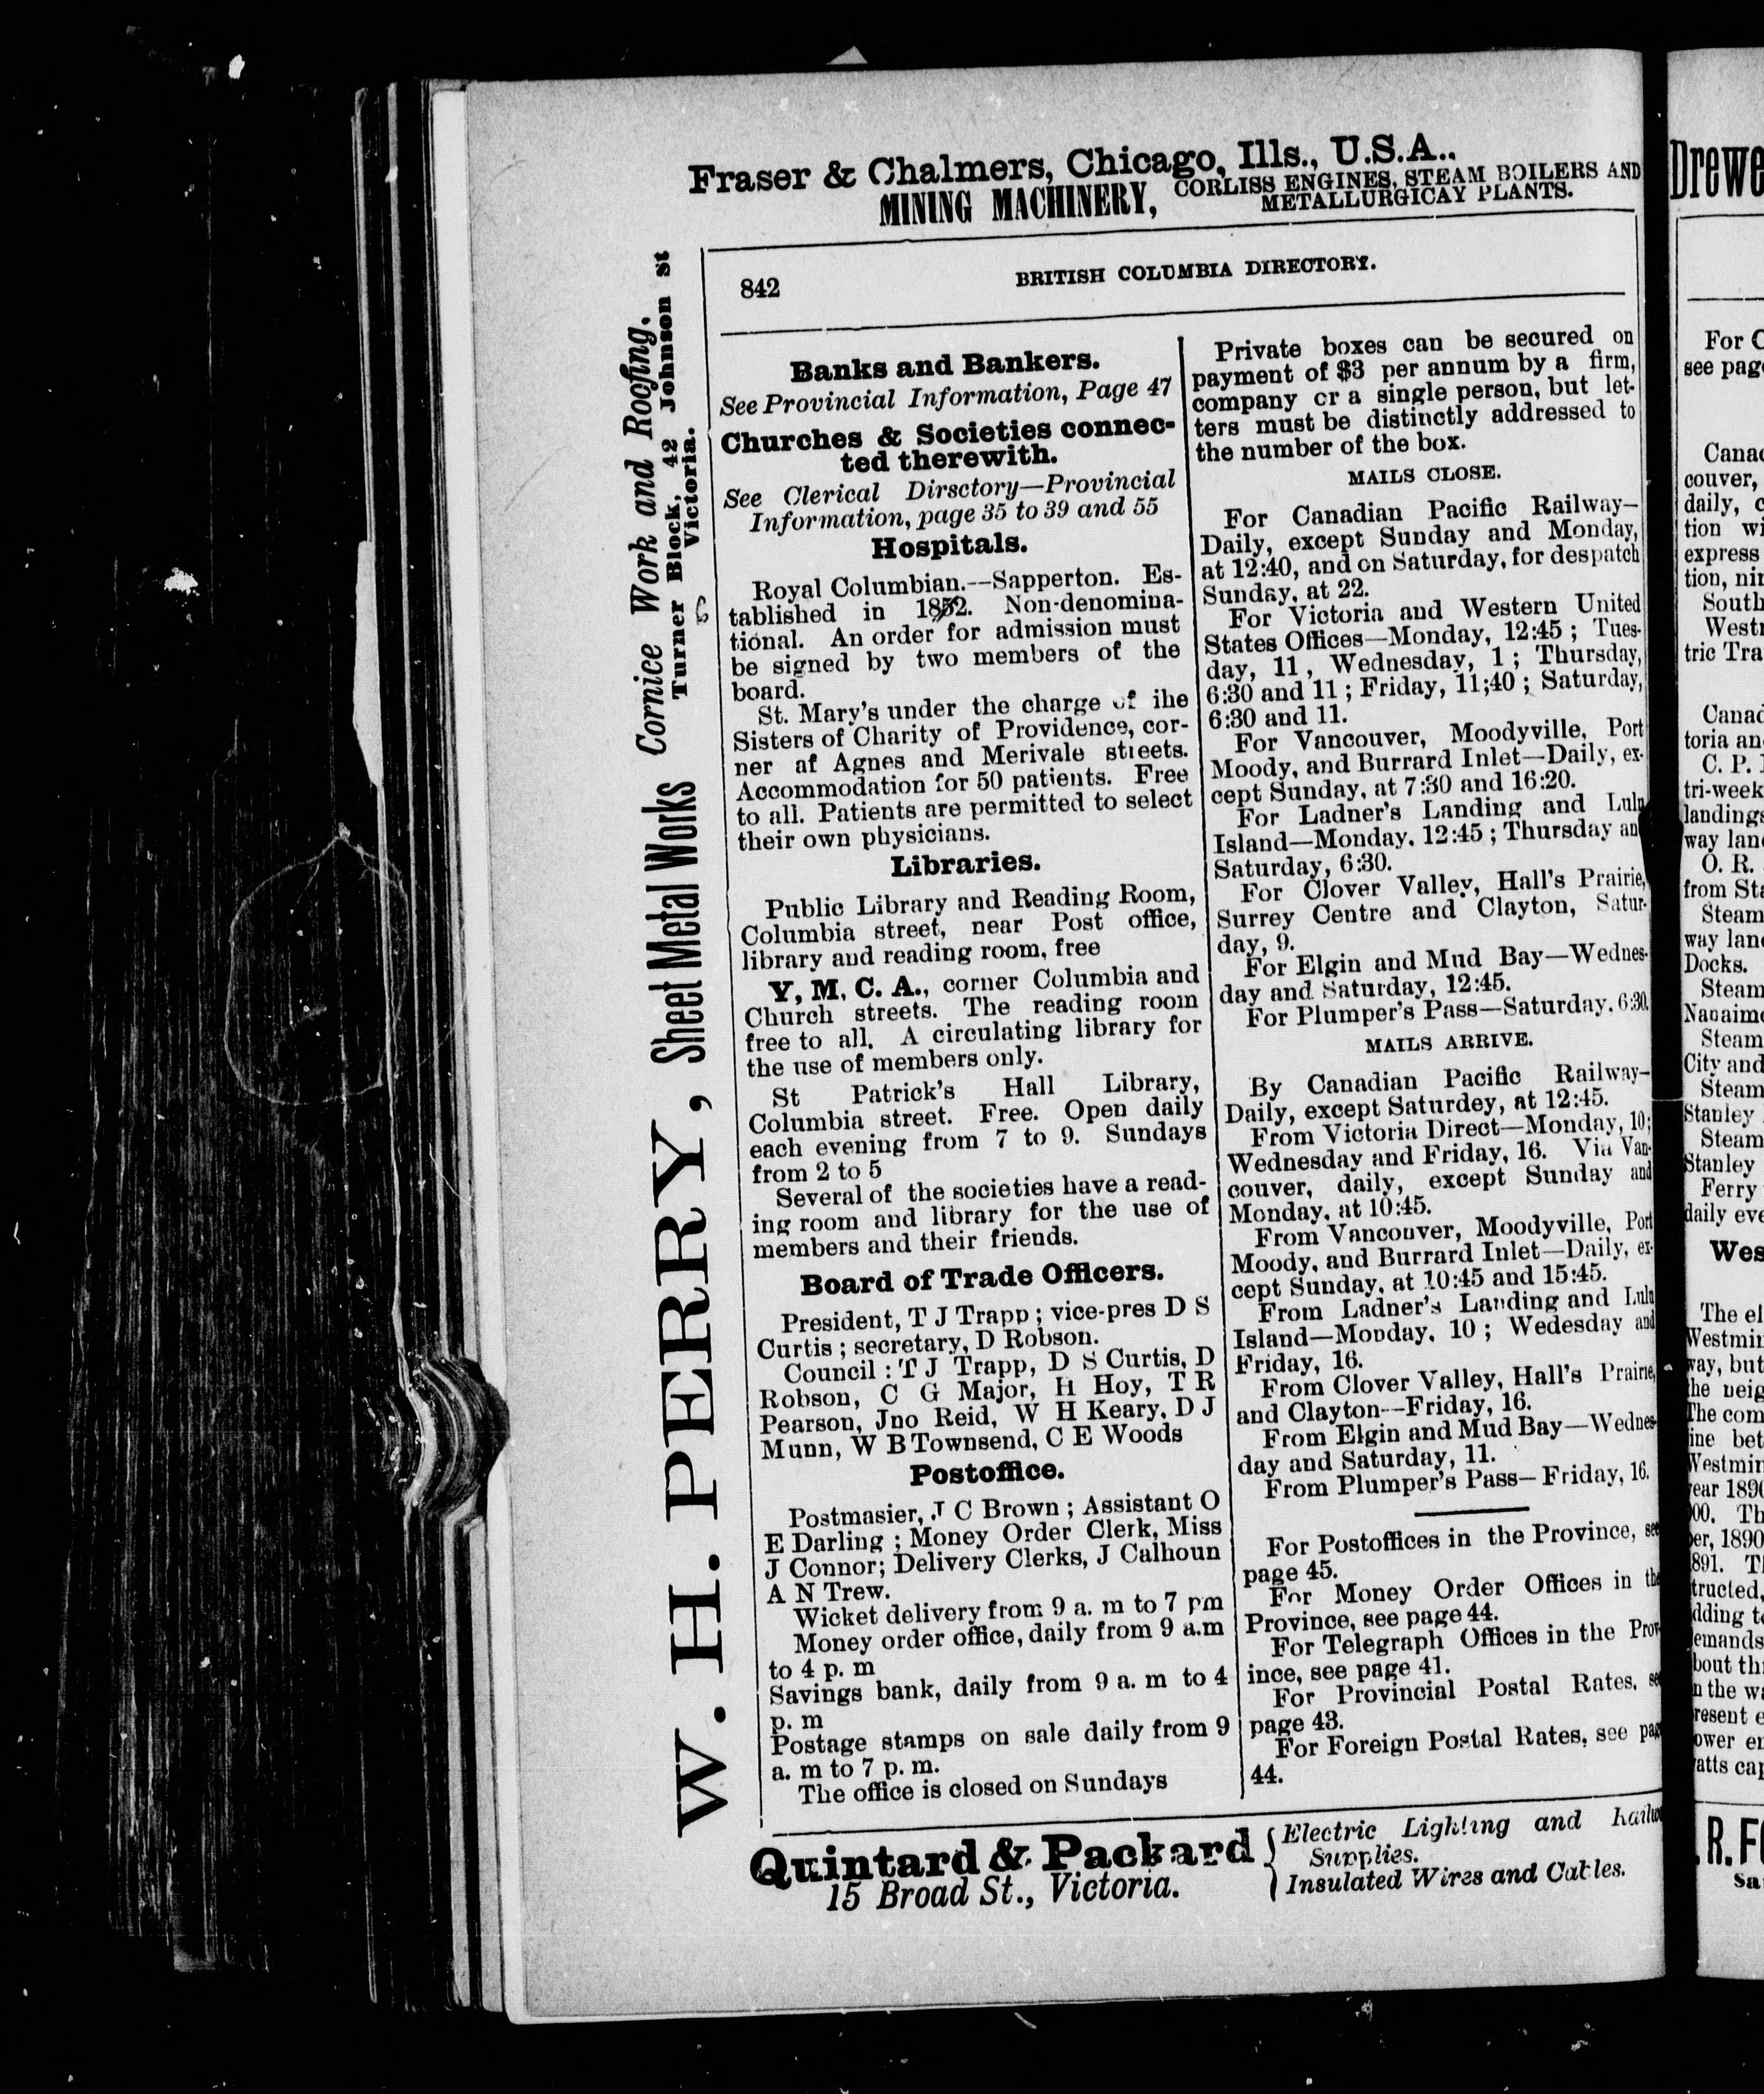 Fraser & Chalmers, Chicago, Ills., U.S.A..
MINING MACHINERY, CORLISS ENGINES, STEAM BOILERS AND
METALLURGICAY PLANTS.
842
BRITISH COLUMBIA DIRECTORY.
W. H. PERRY, Sheet Metal Works Cornice Work and Roofing.
Turner Block, 42 Johnson st
Victoria.
Banks and Bankers.
See Provincial Information, Page 47
Churches & Societies connec-
ted therewith.
See Clerical Dirsctory—Provincial
Information, page 35 to 39 and 55
Hospitals.
Royal Columbian.--Sapperton. Es-
tablished in 1852. Non-denomina-
6
tional. An order for admission must
be signed by two members of the
board.
St. Mary's under the charge of ihe
Sisters of Charity of Providence, cor-
ner af Agnes and Merivale stieets.
Accommodation for 50 patients. Free
to all. Patients are permitted to select
their own physicians.
Libraries.
Public Library and Reading Room,
Columbia street, near Post office,
library and reading room, free
Y, M, C. A., corner Columbia and
Church streets. The reading room
free to all. A circulating library for
the use of members only.
St Patrick's Hall Library,
Columbia street. Free. Open daily
each evening from 7 to 9. Sundays
from 2 to 5
Several of the societies have a read-
ing room and library for the use of
members and their friends.
Board of Trade Officers.
President, T J Trapp ; vice-pres D S
Curtis ; secretary, D Robson.
Council : T J Trapp, D S Curtis, D
Robson, C G Major, H Hoy, T R
Pearson, Jno Reid, W H Keary, D J
Munn, W B Townsend, C E Woods
Postoffice.
Postmasier, J C Brown ; Assistant O
E Darling ; Money Order Clerk, Miss
J Connor; Delivery Clerks, J Calhoun
A N Trew.
Wicket delivery from 9 a. m to 7 pm
Money order office, daily from 9 a.m
to 4 p. m
Savings bank, daily from 9 a. m to 4
p. m
Postage stamps on sale daily from 9
a. m to 7 p. m.
The office is closed on Sundays
Private boxes can be secured on
payment of $3 per annum by a firm,
company cr a single person, but let-
ters must be distinctly addressed to
the number of the box.
MAILS CLOSE.
For Canadian Pacific Railway—
Daily, except Sunday and Monday,
at 12:40, and on Saturday, for despatch
Sunday, at 22.
For Victoria and Western United
States Offices—Monday, 12:45 ; Tues-
day, 11, Wednesday, 1 ; Thursday,
6:30 and 11 ; Friday, 11;40 ; Saturday,
6:30 and 11.
For Vancouver, Moodyville, Port
Moody, and Burrard Inlet—Daily, ex-
cept Sunday, at 7:30 and 16:20.
For Ladner's Landing and Lulu
Island—Monday. 12:45 ; Thursday an
Saturday, 6:30.
For Clover Valley, Hall's Prairie,
Surrey Centre and Clayton, Satur-
day, 9.
For Elgin and Mud Bay—Wednes-
day and Saturday, 12:45.
For Plumper's Pass—Saturday. 6:30.
MAILS ARRIVE.
By Canadian Pacific Railway—
Daily, except Saturdey, at 12:45.
From Victoria Direct—Monday, 10;
Wednesday and Friday, 16. Via Van-
couver, daily, except Sunday and
Monday, at 10:45.
From Vancouver, Moodyville, Port
Moody, and Burrard Inlet—Daily, ex-
cept Sunday, at 10:45 and 15:45.
From Ladner's Landing and Lulu
Island—Monday. 10 ; Wedesday and
Friday, 16.
From Clover Valley, Hall's Prairie,
and Clayton--Friday, 16.
From Elgin and Mud Bay—Wednes-
day and Saturday, 11.
From Plumper's Pass—Friday, 16.
For Postoffices in the Province, see
page 45.
For Money Order Offices in the
Province, see page 44.
For Telegraph Offices in the Prov-
ince, see page 41.
For Provincial Postal Rates. see
page 43.
For Foreign Postal Rates, see page
44.
Quintard & Packard
15 Broad St., Victoria.
Electric Lighting and Railw
Supplies.
Insulated Wires and Cables.
Drewe
For C
see pag
Canad
couver,
daily, c
tion wi
express
tion, nin
South
Westr
tric Tra
Canad
toria an
C. P.
tri-week
landings
way lan
O. R.
from Sta
Steam
way lan
Docks.
Steam
Nanaimo
Steam
City and
Steam
Stanley
Steam
Stanley
Ferry
daily eve
Wes
The el
Westmin
way, but
the neig
The com
ine bet
Westmin
ear 1890
00. Th
er, 1890
891. Th
tructed,
dding t
emands
bout th
n the wa
resent e
ower en
atts cap
R. FO
Sa